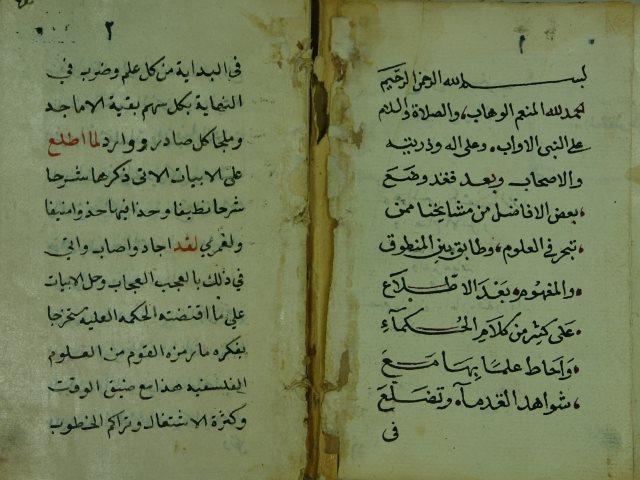 ١
بسم الله الرحمن الرحيم
الحمد لله المنعم الوهاب، والصلاة والسلام
على النبى الاواب، وعلى اله وذريته
والاصحاب وبعد فقد وضع
بعض الافاضل من مشايخنا ممن
تبحر فى العلوم، وطابق بين المنطوق
والمفهوم، بعد الاطلاع
على كثير من كلام الحكماء
واحاط علما بها مع
شواهد القدماء وتضلع
فى
٢
فى البداية من كل علم وضرب في
النهاية بكل سهم بقية الاماجد
وملجا كل صادر ووارد لما اطلع
على الابيات الاتى ذكرها شرحا
شرحا نظيفا وحذا فيها حذوا منيفا
ولعمري لقد اجاد واصاب واتى
في ذلك بالعجب العجاب وحل الابيات
على ما اقتضته الحكمة العلية مستخرجا
بفكره ما رمزه القوم من العلوم
الفلسفيه هذا مع ضيق الوقت
وكثرة الاشتغال وتراكم الخطوب